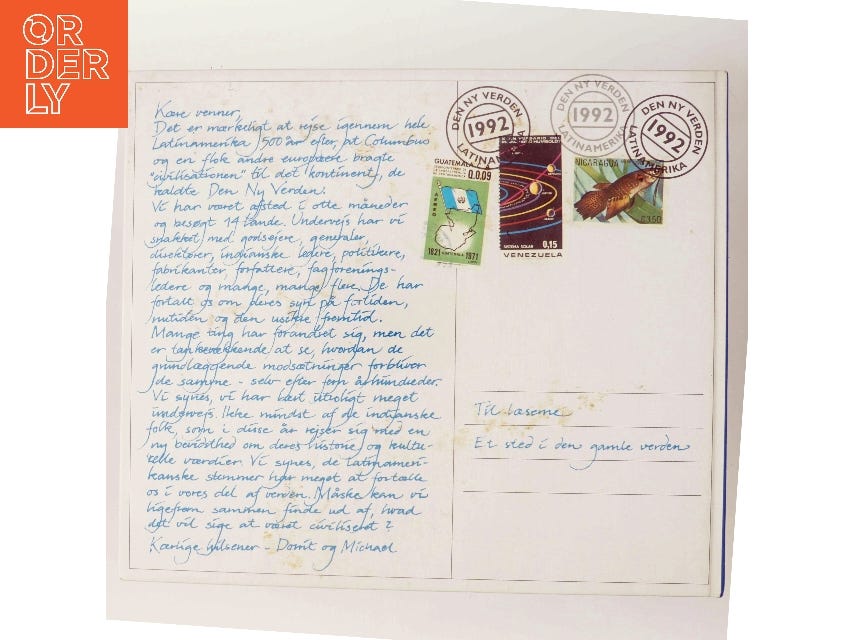 ORDERLY
Kære venner,
Det er mærkeligt at rejse igennem hele
Latinamerika, 500 år efter, at Columbus
og en flok andre europæere bragte
"civilisationen" til det kontinent, de
kaldte Den Ny Verden.
Vi har været afsted i otte måneder
og besøgt 14 lande. Undervejs har vi
snakket med godsejere, generaler,
direktører, indianske ledere, politikere,
fabrikanter, forfattere, fagforenings-
ledere og mange, mange flere. De har
fortalt os om deres syn på fortiden,
nutiden og den usikre fremtid.
Mange ting har forandret sig, men det
er tankevækkende at se, hvordan de
grundlæggende modsætninger forbliver
de samme - selv efter fem århundreder.
Vi synes, vi har lært utroligt meget
undervejs. Ikke mindst af de indianske
folk, som i disse år rejser sig med en
ny bevidsthed om deres historie og kultu-
relle værdier. Vi synes, de latinameri-
kanske stemmer har meget at fortælle
os i vores del af verden. Måske kan vi
ligefrem sammen finde ud af, hvad
det vil sige at været civiliseret?
Kærlige hilsener - Dorrit og Michael
DEN NY VERDEN
1992
LATINAMERIKA
DEN NY VERDEN
1992
LATINAMERIKA
DEN NY VERDEN
1992
LATINAMERIKA
GUATEMALA
Q.0.09
AEREO
1821 GUATEMALA 1971
SISTEMA SOLAR 0,15
VENEZUELA
NICARAGUA
C3.50
Til læserne
Et sted i den gamle verden